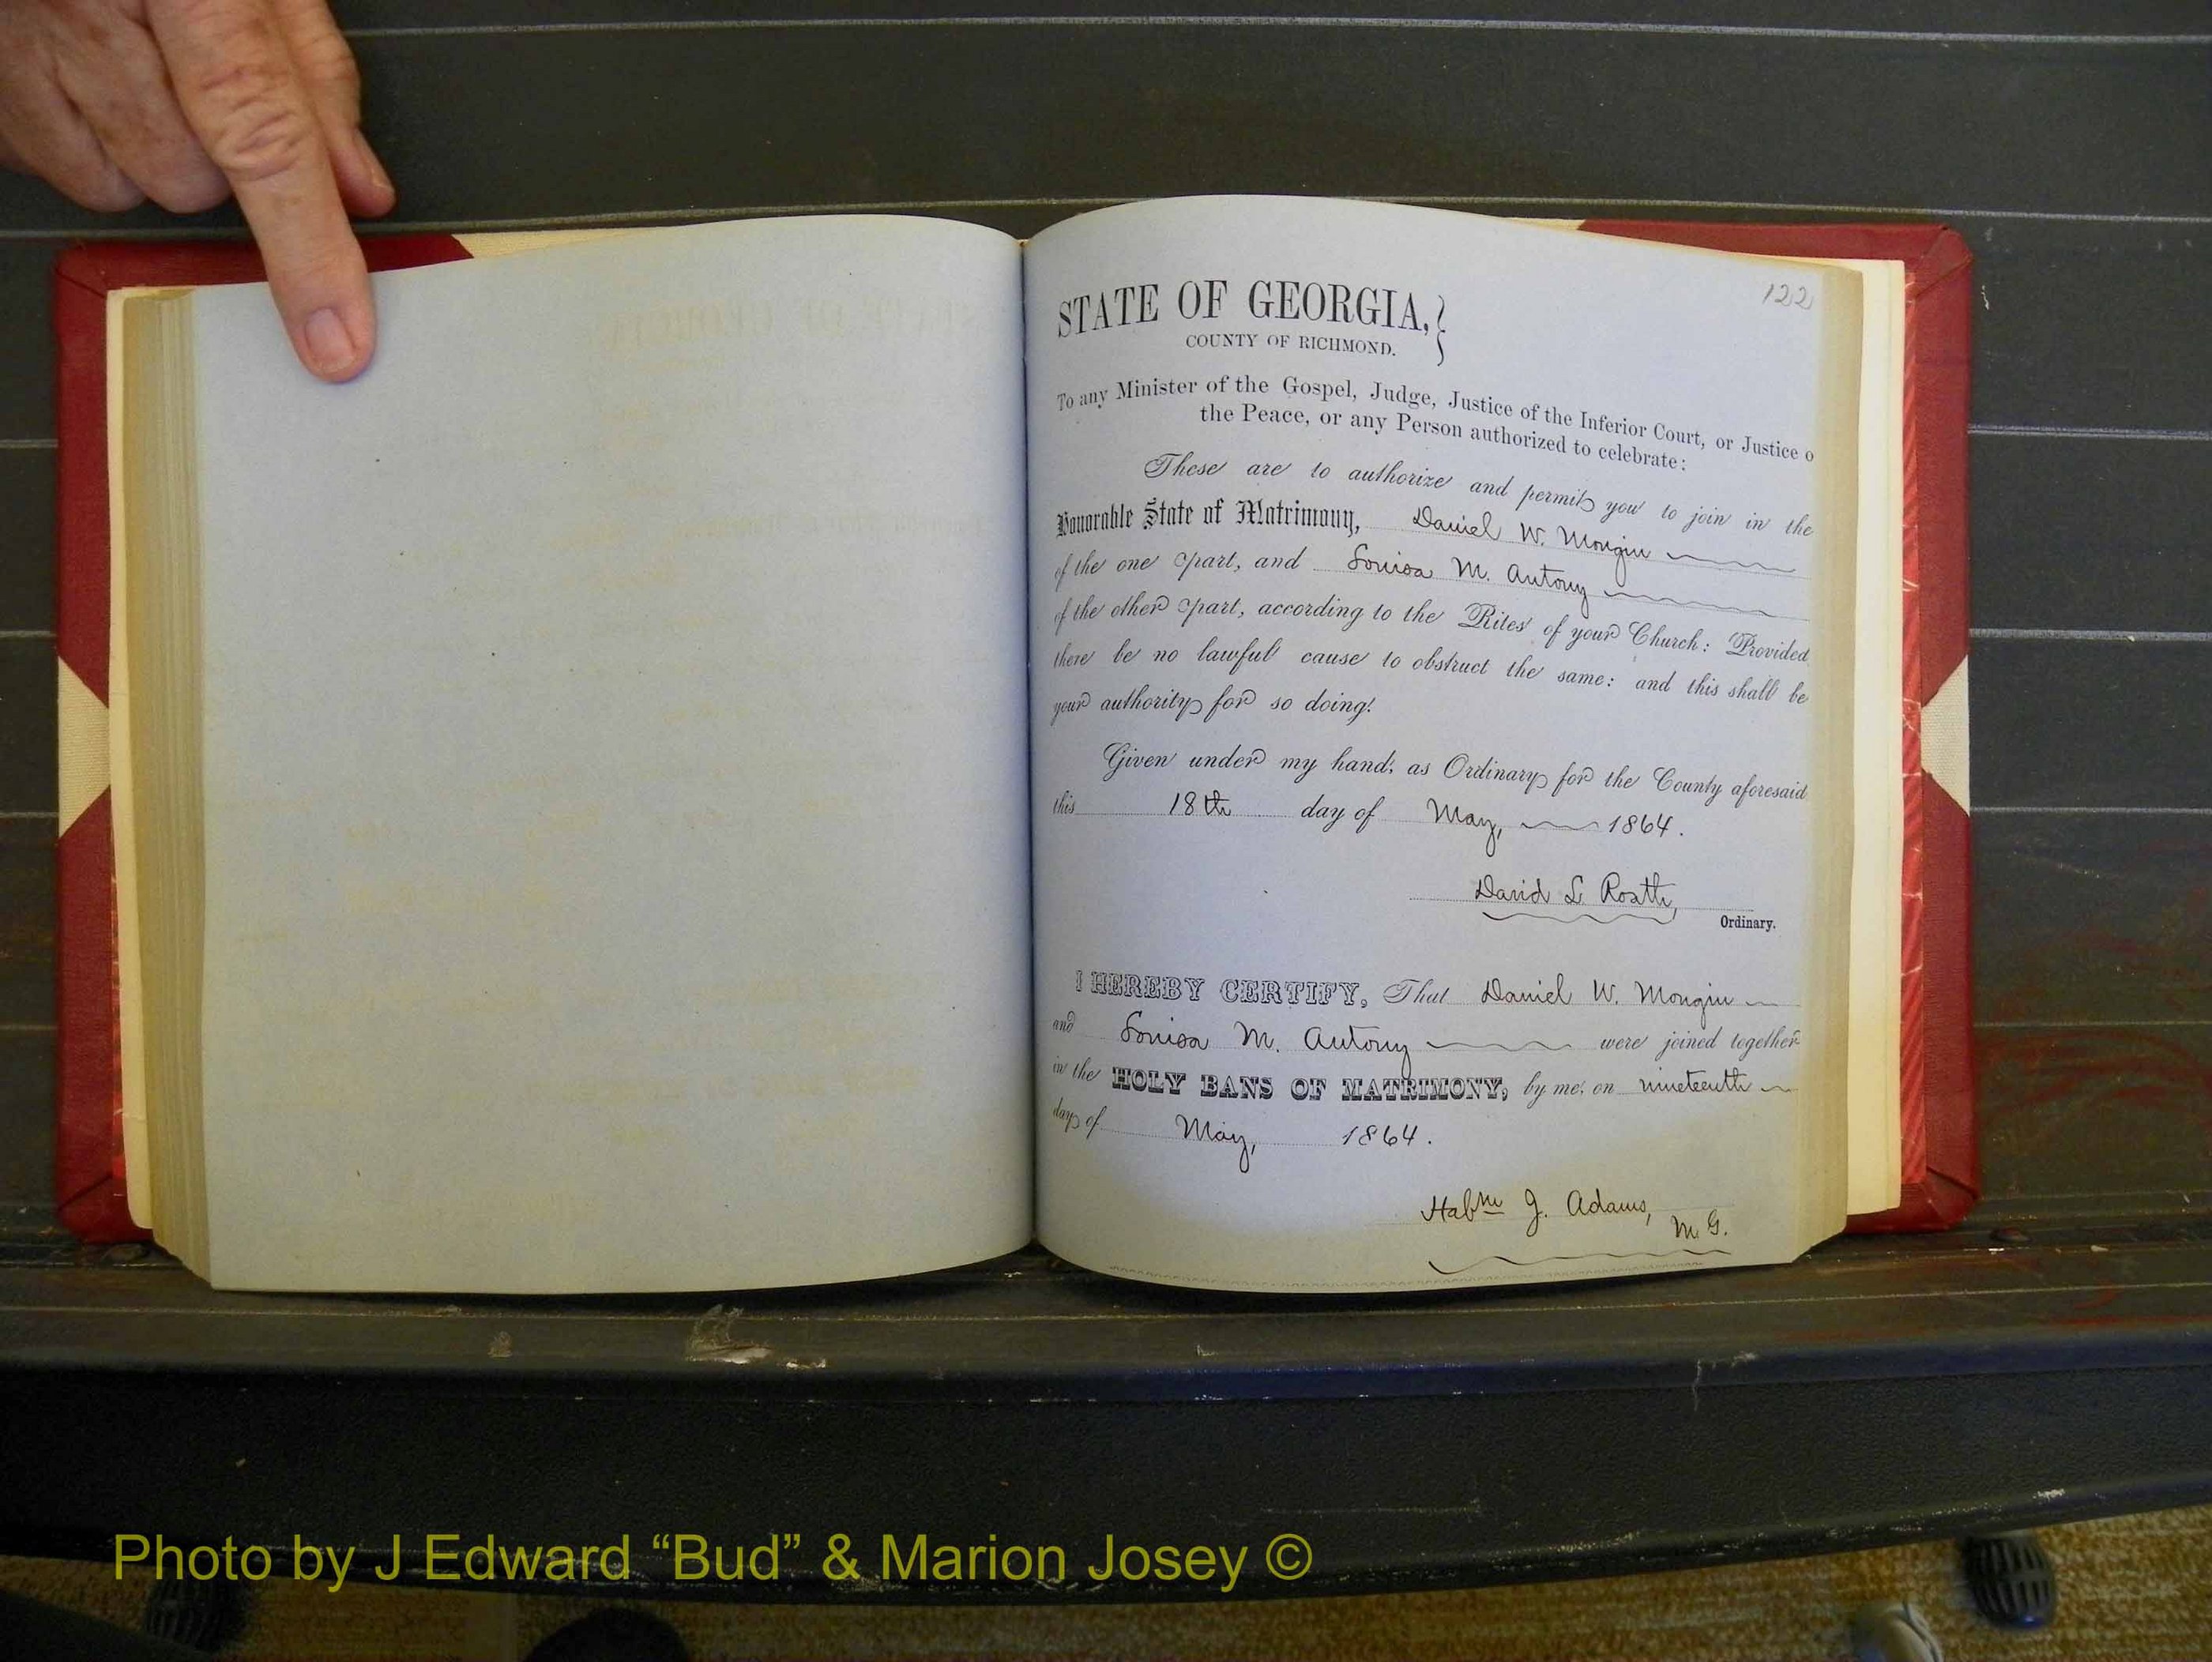 122
STATE OF GEORGIA,
COUNTY OF RICHMOND.
To any Minister of the Gospel, Judge, Justice of the Inferior Court, or Justice o
the Peace, or any Person authorized to celebrate:
These are to authorize and permit you to join in the
Honorable State of Matrimony, Daniel W. Mongin
of the one part, and Louisa M. Antony
of the other part, according to the Rites of your Church: Provided
there be no lawful cause to obstruct the same: and this shall be
your authority for so doing.
Given under my hand, as Ordinary for the County aforesaid
this 18th day of May, 1864.
David L. Roath,
Ordinary.
I HEREBY CERTIFY, That Daniel W. Mongin
and Louisa M. Antony were joined together
in the HOLY BANS OF MATRIMONY, by me, on nineteenth
day of May, 1864.
Habm J. Adams,
M. G.
Photo by J Edward “Bud” & Marion Josey ©